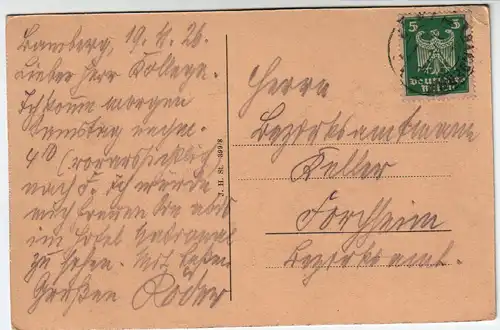 Bamberg, 19. 11. 26.
Lieber Herr Kollege.
Ich komme morgen
Samstag nachm.
4⁰ (voraussichtlich)
nach F. Ich würde
mich freuen Sie
im Hotel
zu sehen. Mit besten
Grüßen Röder
Herrn
Bezirksamtmann
Keller
Forchheim
Bezirksamt.
J. H. St. 899/8
5 5
Deutsches
Reich